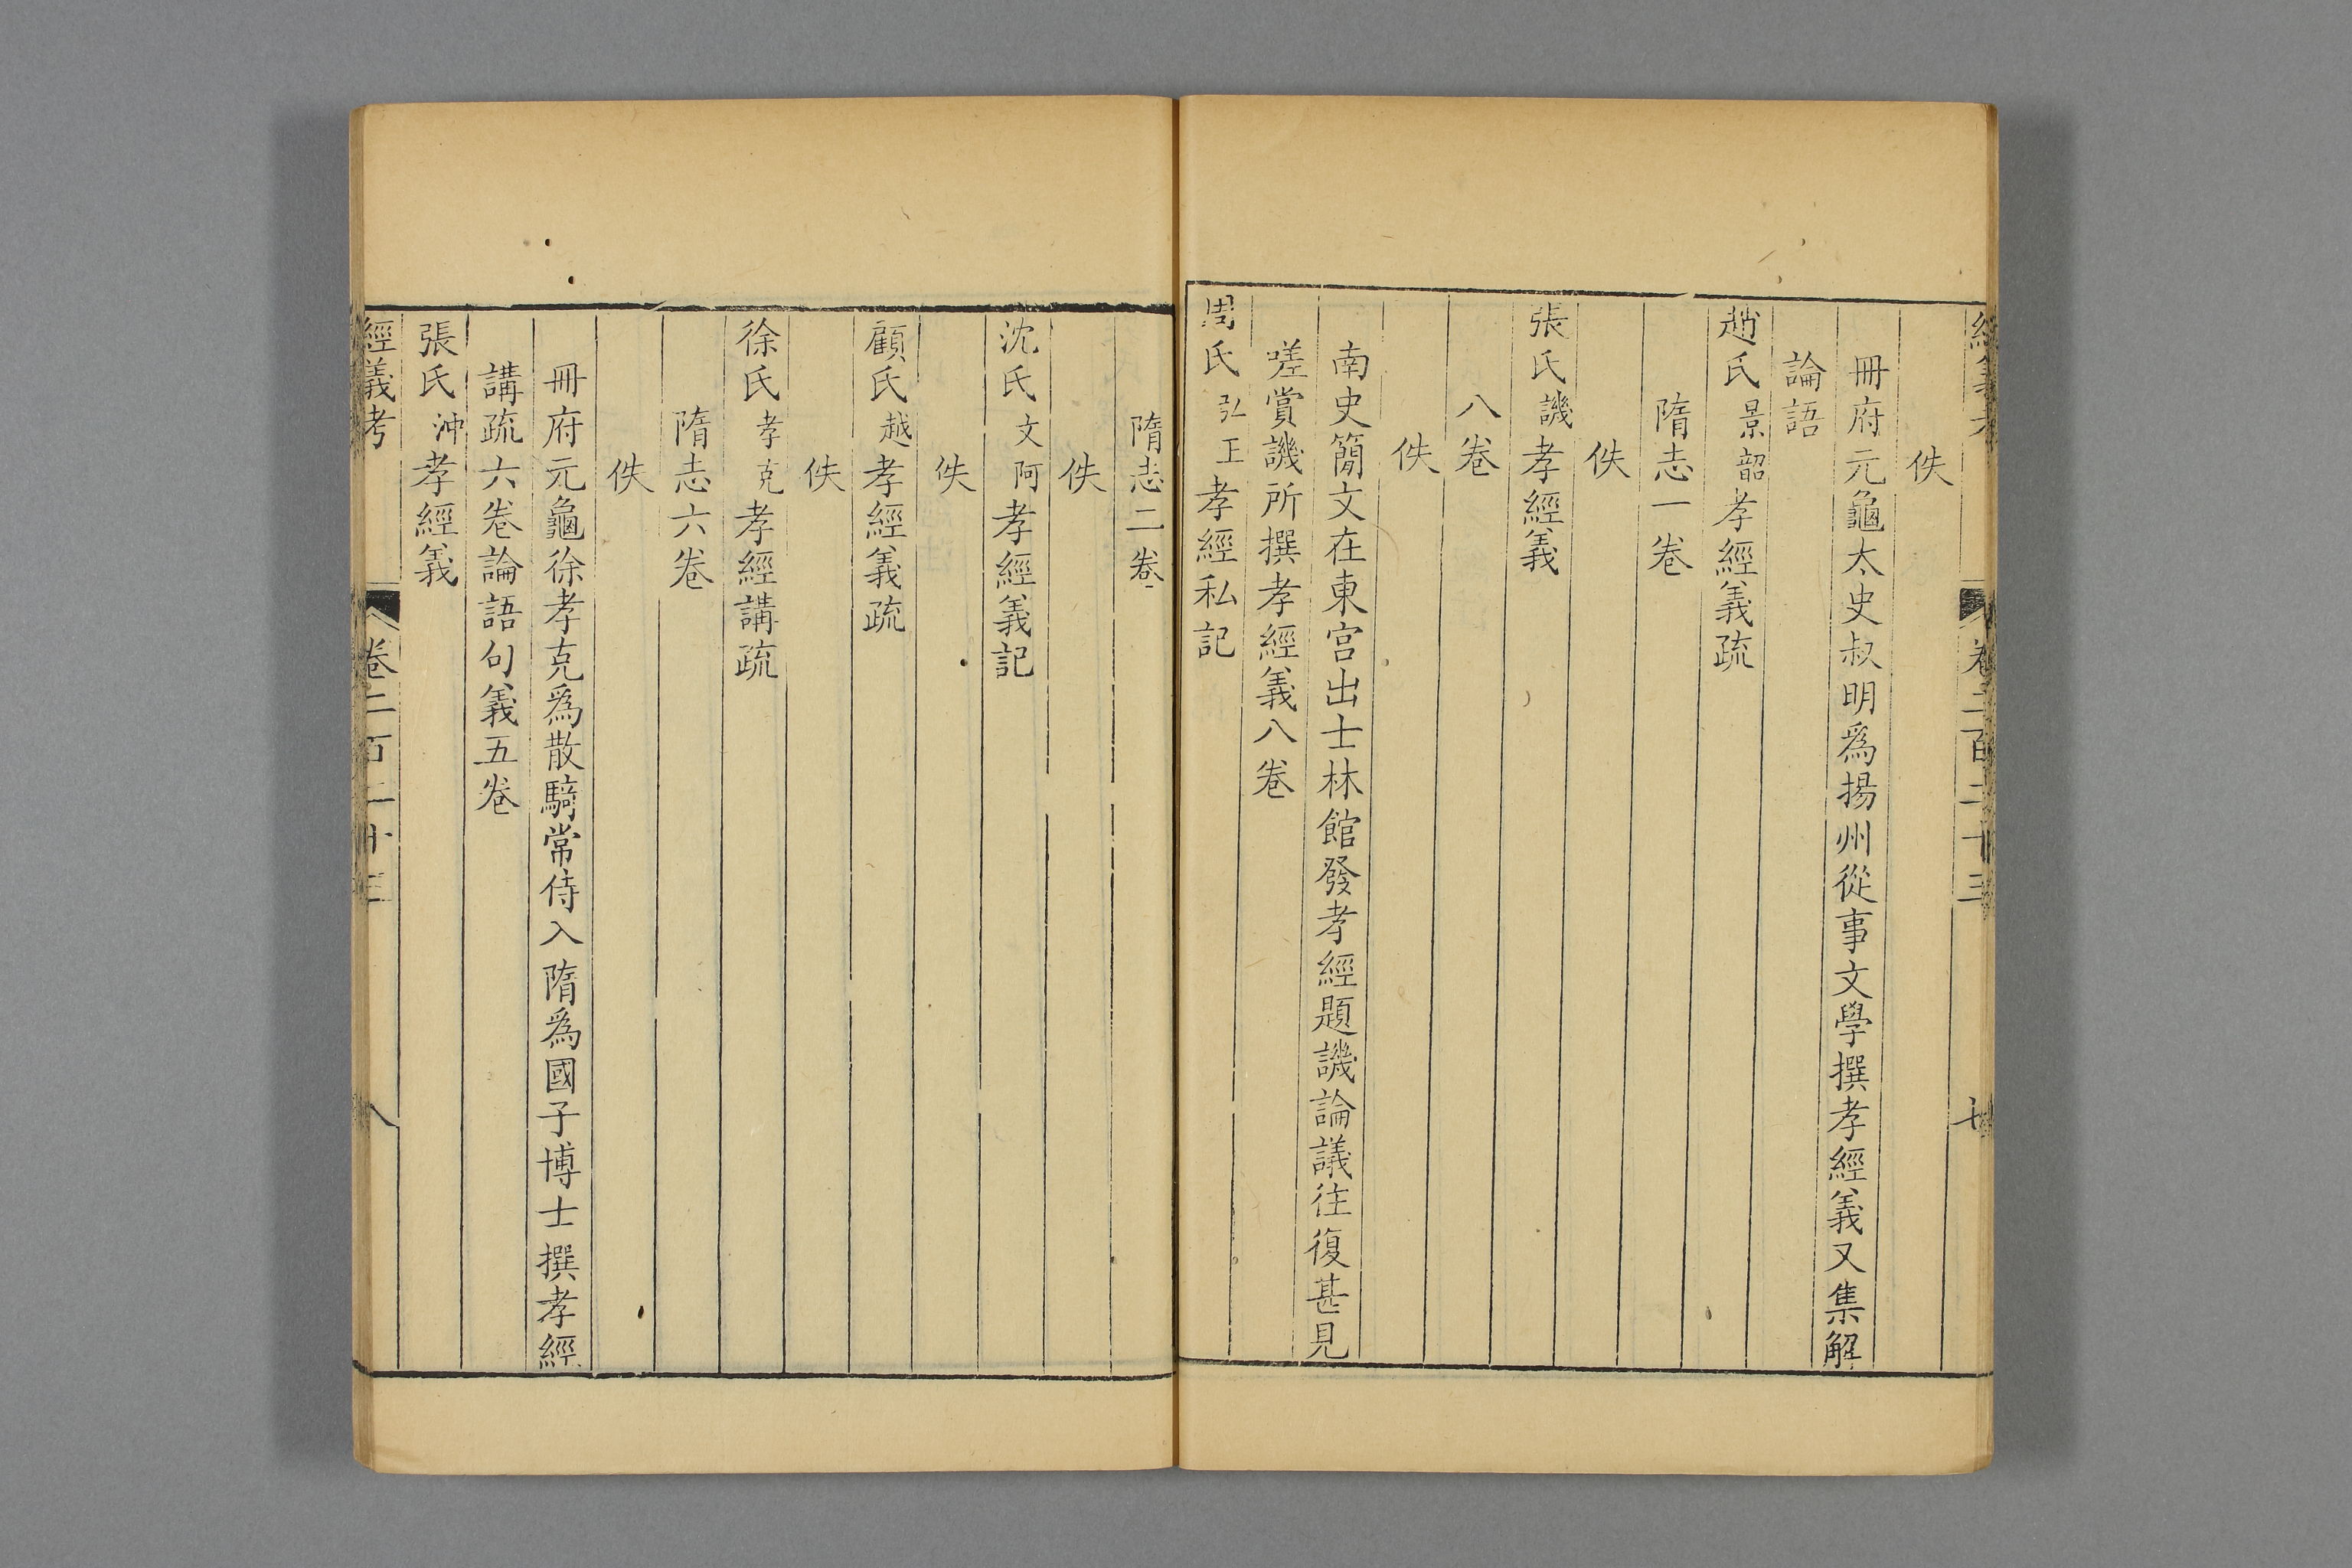 經義考 卷二百二十三 七
佚
冊府元龜太史叔明爲揚州從事文學撰孝經義又集解
論語
趙氏景韶孝經義疏
隋志一卷
佚
張氏譏孝經義
八卷
佚
南史簡文在東宮出士林館發孝經題譏論議往復甚見
嗟賞譏所撰孝經義八卷
周氏弘正孝經私記
隋志二卷
佚
沈氏文阿孝經義記
佚
顧氏越孝經義疏
佚
徐氏孝克孝經講疏
隋志六卷
佚
冊府元龜徐孝克爲散騎常侍入隋爲國子博士撰孝經
講疏六卷論語句義五卷
張氏沖孝經義
經義考 卷二百二十三 八